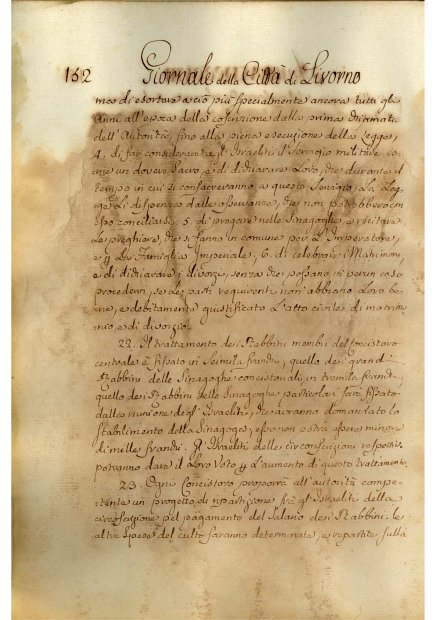 152 Giornale della Città di Livorno
meo di esortare a ciò più specialmente ancora tutti gli
anni all'epoca della coscrizione dalla prima chiamata
dell'Autorità, fino alla piena esecuzione della Legge,
4. di far considerare a gl'Israeliti il servigio militare co=
me un dovere sacro, e di dichiarare Loro, che durante il
tempo in cui si consacreranno a questo servigio, La Leg=
ge Li dispensa dalle osservanze, che non potrebbero con
esso conciliarsi: 5. di pregare nelle Sinagoghe, e recitare
Le preghiere, che si fanno in comune per L'Imperatore,
e p La Famiglia Imperiale, 6. di celebrare i Matrimonj,
e di dichiarare i divorzj, senza che possano in verun caso
procedervi, se Le parti requirenti non abbiano Loro be=
ne, e debitamente giustificato L'atto civile di matrim=
onio, e di divorzio.
22. Il trattamento dei Rabbini membri del Concistoro
centrale è fissato in Seimila franchi; quello dei grandi
Rabbini delle Sinagoghe concistoriali, in tremila franchi,
quello dei Rabbini delle Sinagoghe particolari sarà fissato
dalla riunione degl'Israeliti, che avranno domandato lo
stabilimento della Sinagoga; esso non potrà essere minore
di mille franchi. Gl'Israeliti delle circoscrizioni rispettive
potranno dare il Loro Voto p L'aumento di questo trattamento.
23. Ogni Concistoro proporrà all'autorità compe=
tente un progetto di repartizione frà gl'Israeliti della
circoscrizione pel pagamento del Salario dei Rabbini: le
altre spese del culto saranno determinate, e repartite sulla